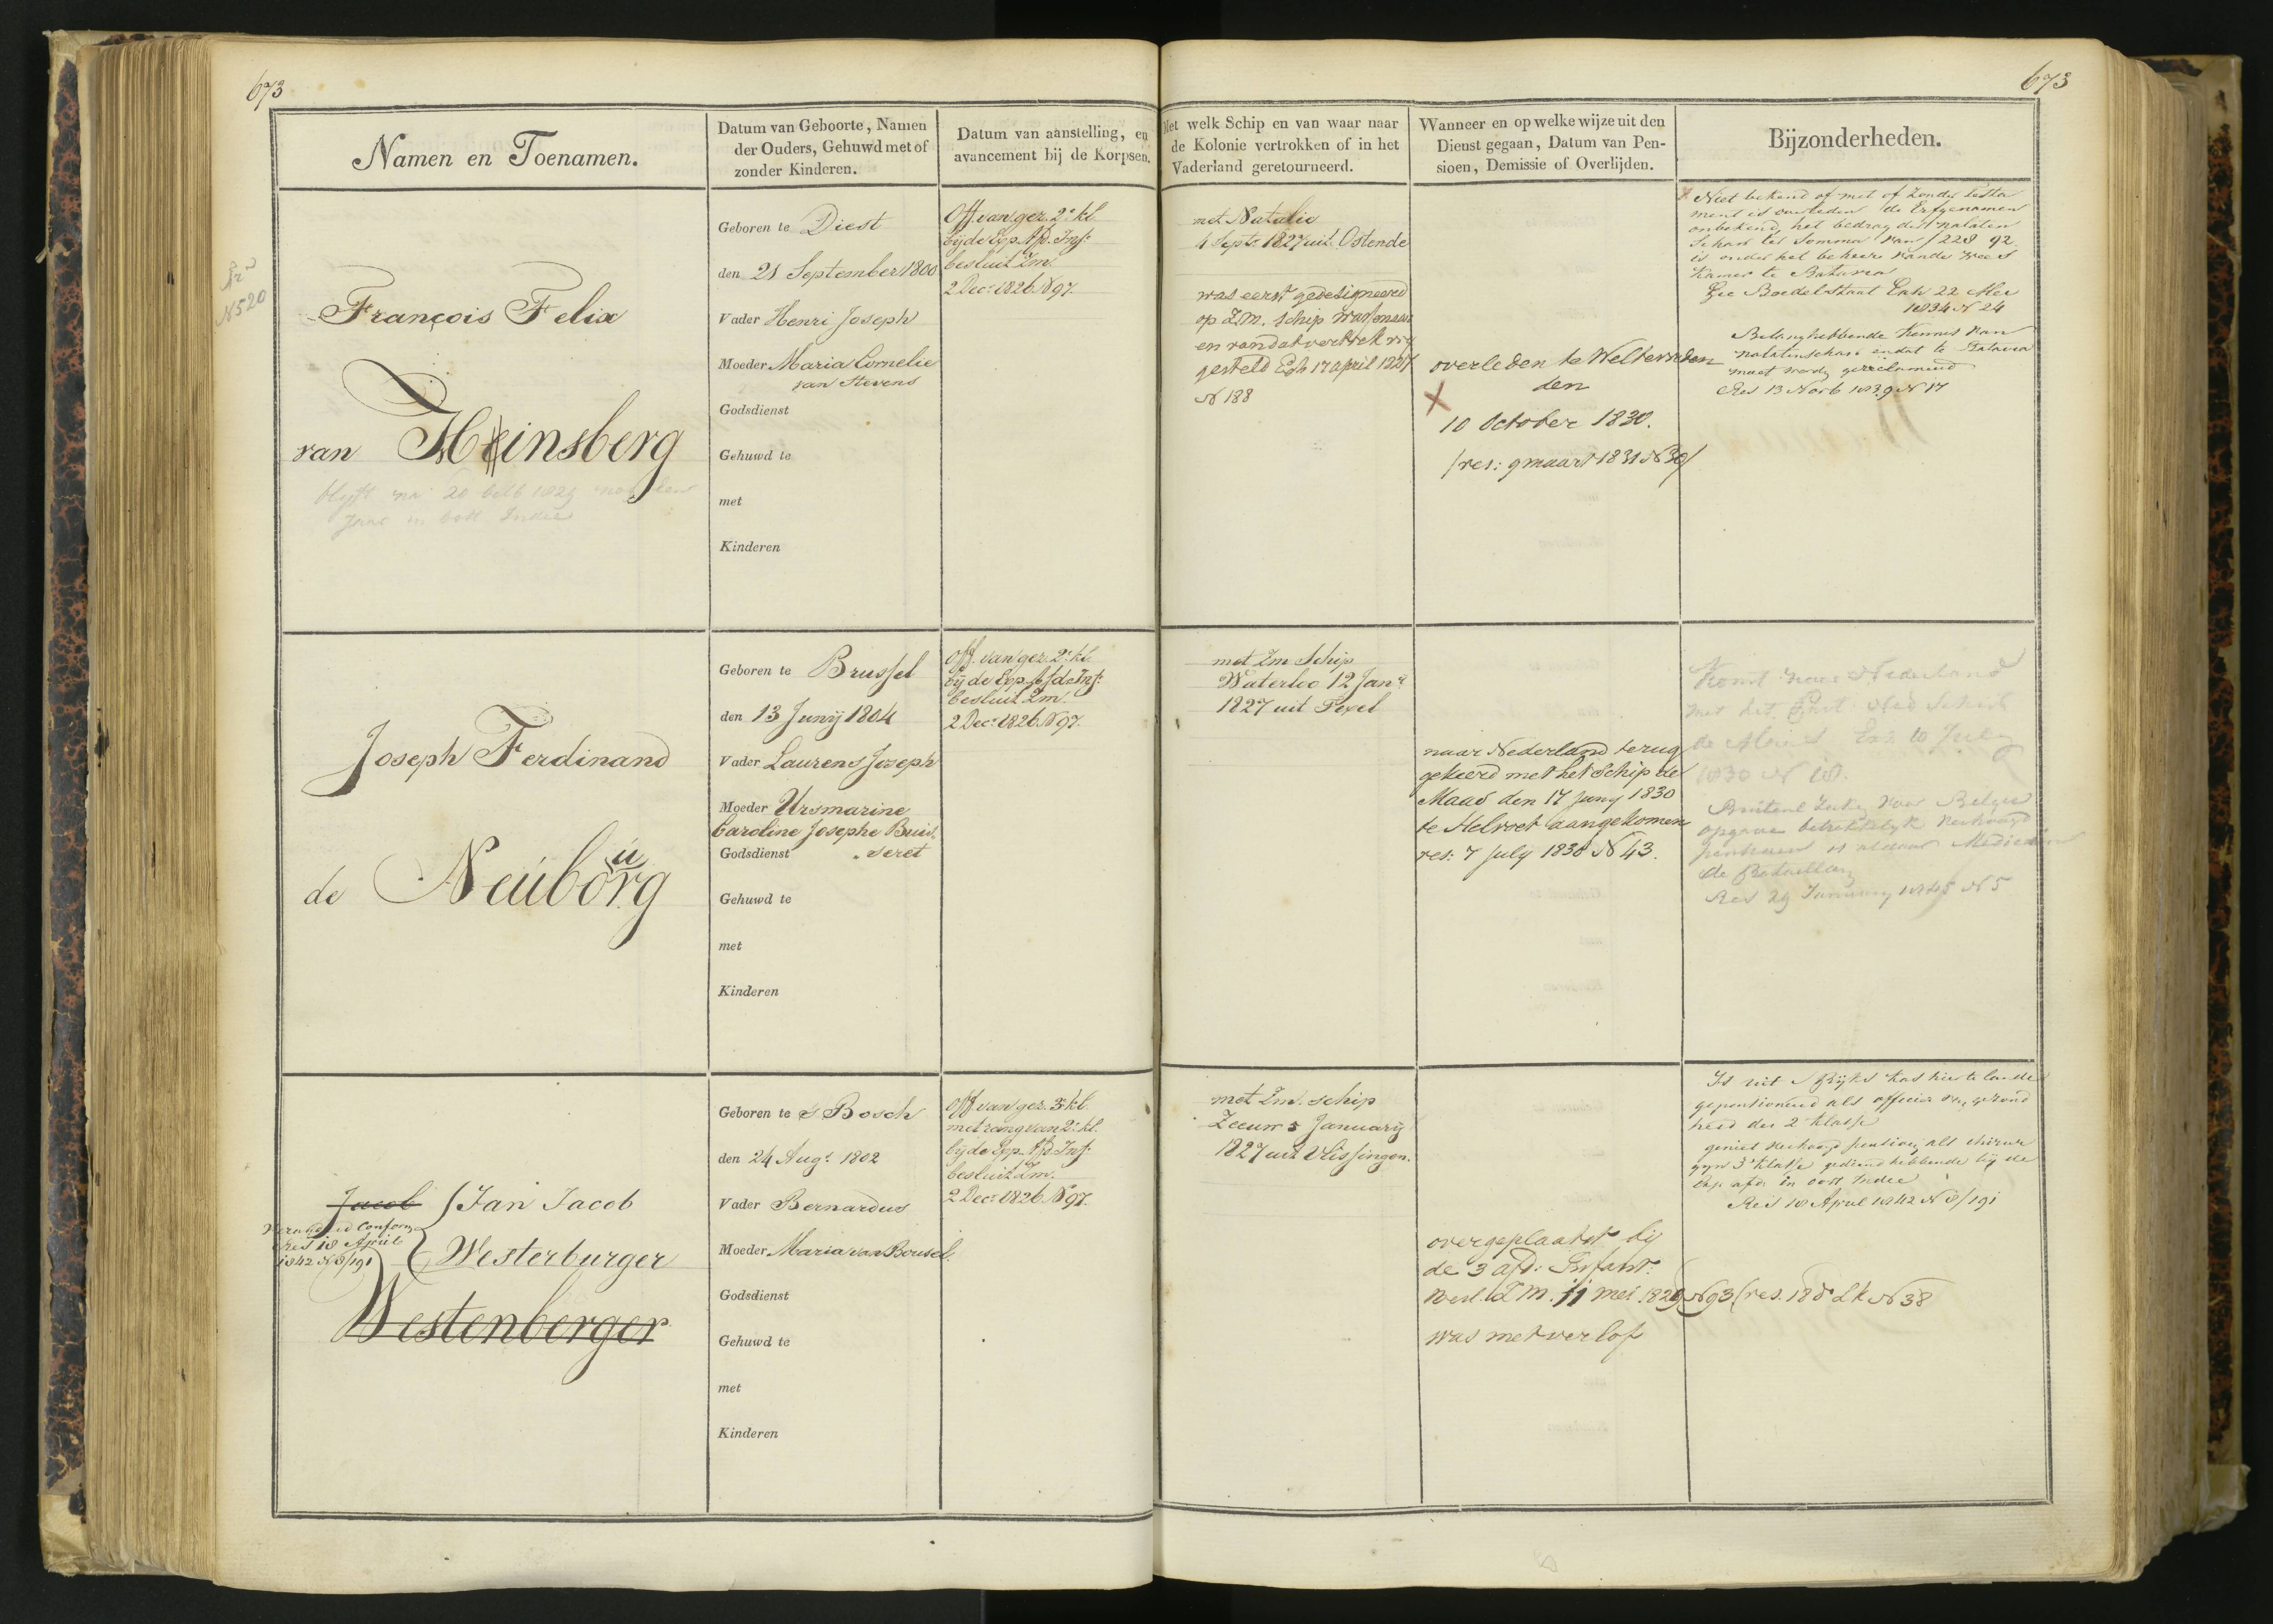 673
673
Namen en Toenamen.
Datum van Geboorte, Namen
der Ouders, Gehuwd met of
zonder Kinderen.
Datum van aanstelling, en
avancement bij de Korpsen.
Met welk Schip en van waar naar
de Kolonie vertrokken of in het
Vaderland geretourneerd.
Wanneer en op welke wijze uit den
Dienst gegaan, Datum van Pen-
sioen, Demissie of Overlijden.
Bijzonderheden.
N 520
François Felix
van Heinsberg
Geboren te Diest
den 21 September 1800
Vader Henri Joseph
Moeder Maria Cornelie
van Stevens
Godsdienst
Gehuwd te
met
Kinderen
Off. van gez. 2e kl.
bij de Exp. Afd. Inf:
besluit Zm.
2 Dec: 1826 N 97.
met Natalie
4 Sept: 1827 uit Ostende
was eerst gedesigneerd
op Z.M. Schip Wassenaar
en van dat vertrek vrij
gesteld Exh 17 april 1827
N 188
overleden te Weltevreden
den
10 October 1830.
/res: 9 maart 1831 N 30/
Niet bekend of met of zonder testa
ment is overleden de Erfgenamen
onbekend, het bedrag der nalaten
schap ter Somma van f 228 92
is onder het beheer van de Wees
Kamer te Batavia
Zie Boedelstaat Exh 22 Mei
1834 N 24
Belanghebbende Kennis van
nalatenschap en dat te Batavia
moet worden gereclameerd
Res 13 Novb 1839 N 17
Joseph Ferdinand
de Neúborg
ú
Geboren te Brussel
den 13 Junij 1804
Vader Laurens Joseph
Moeder Ursmarine
Caroline Josephe Buis
seret
Godsdienst
Gehuwd te
met
Kinderen
Off. van gez. 2e kl.
bij de Exp. Afd. Inf:
besluit Zm.
2 Dec: 1826 N 97.
met Zm Schip
Waterloo 12 Jan:
1827 uit Texel
naar Nederland terug
gekeerd met het Schip de
Maas den 17 Juny 1830
te Helvoet aangekomen
res: 7 July 1830 N 43.
Komt naar Nederland
met het Schip
de Maas Exh 10 July
1830 N 18.
Res 29 January 1845 N 5
Jacob / Jan Jacob
Veranderd Conform
Res 18 April
1842 N 8/191
Westerburger
Westenberger
Geboren te s Bosch
den 24 Aug: 1802
Vader Bernardus
Moeder Maria van Bousel.
Godsdienst
Gehuwd te
met
Kinderen
Off. van gez. 3e kl.
met rang van 2e kl.
bij de Exp. Afd. Inf:
besluit Zm.
2 Dec: 1826 N 97.
met Zm. Schip
Zeeuw 5 January
1827 uit Vlissingen.
overgeplaatst bij
de 3 afd: Infant:
besl. Z M. 11 mei 1829 N 93 (res. 18 d° L k N 38
was met verlof
Is uit s Rijks kas hier te lande
gepensioneerd als officier van gezond
heid der 2e Klasse
geniet verhoogd pensioen als chirur
gyn 3e Klasse gediend hebbende bij de
Exp. afd. in oost Indie
Res 18 April 1842 N 8/191